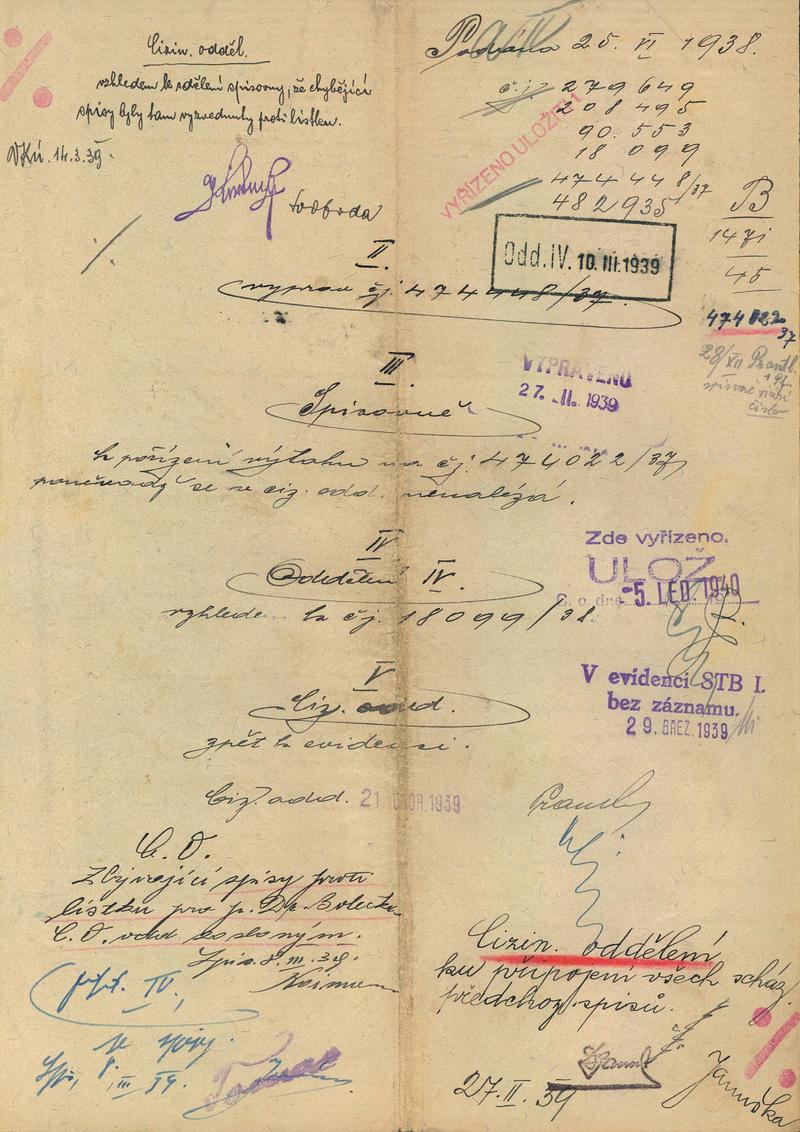 Cizin. odděl.
vzhledem k sdělení spisovny, že chybějící
spisy byly tam vyzvednuty proti lístku.
14.3.39.
Svoboda
25. VI 1938.
č.j. 279649
208495
90.553
18 099
474448/37
482935
VYŘÍZENO ULOŽIT!
B
147i
45
474022
37
28/XII
Odd. IV. 10. III. 1939
II.
vyprav čj. 474448/37.
III.
VYPRAVENO
27. II. 1939
Spisovně
k pořízení výtahu na čj. 474022/37,
poněvadž se v ciz. odd. nenalézá.
IV
Oddělení IV.
vzhledem k čj. 18099/38.
Zde vyřízeno.
ULOŽ
-5. LED. 1940
V
Ciz. odd.
zpět k evidenci.
V evidenci STB I.
bez záznamu.
29. BŘEZ. 1939
Ciz. odd. 21 ÚNOR 1939
C. O.
Zbývající spisy proti
lístku pro p. Dr
C. O. odd
Spis. 8. III. 39.
IV,
se spisy.
8. III 39.
Cizin. oddělení
ku připojení všech scház.
předchoz. spisů.
27. II. 39
Januška